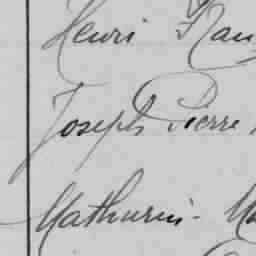 Henri Fran
Joseph Pierre
Mathurin - Ma